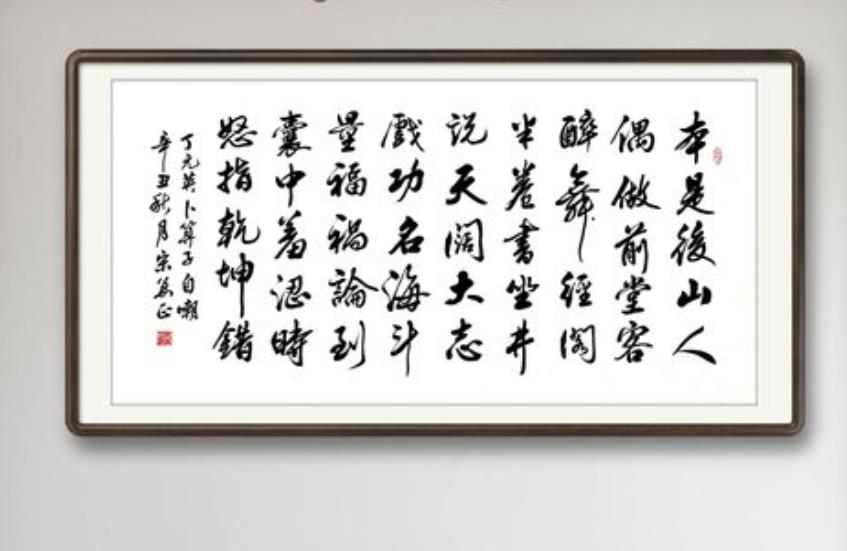 本是後山人
偶做前堂客
醉舞經阁
半卷書坐井
说天阔大志
戲功名海斗
量福禍論到
囊中羞澀時
怒指乾坤錯
丁元英卜算子自嘲
辛丑秋月宗益正